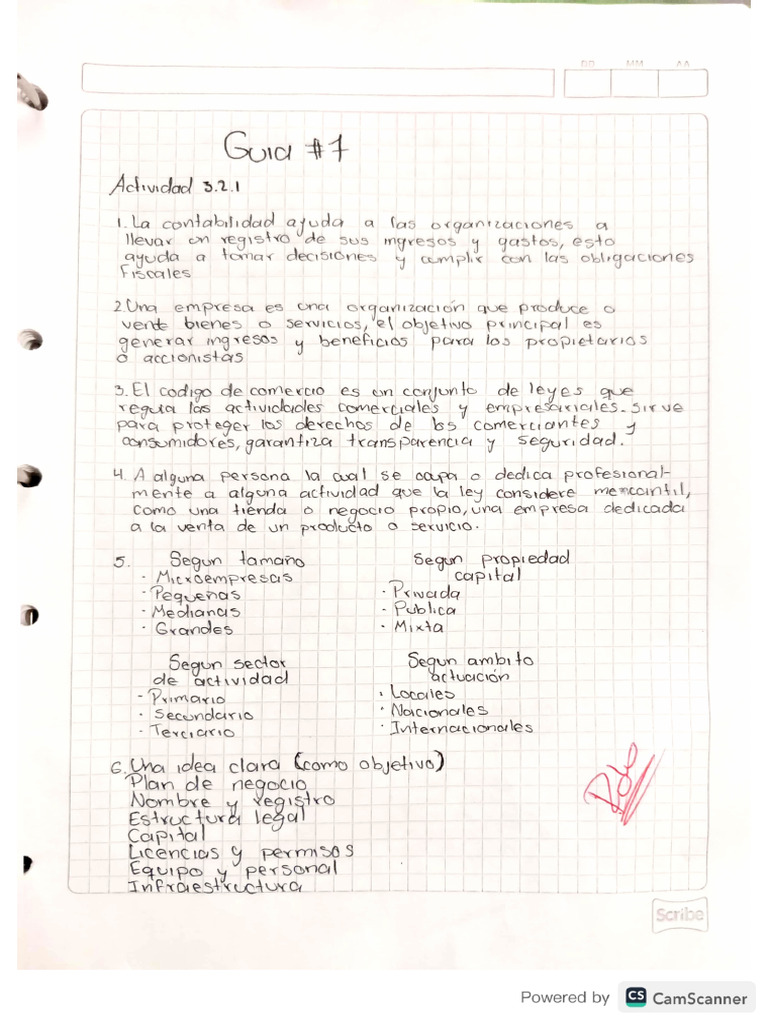 DD MM AA
Guia #1
Actividad 3.2.1
1. La contabilidad ayuda a las organizaciones a
llevar un registro de sus ingresos y gastos, esto
ayuda a tomar decisiones y cumplir con las obligaciones
fiscales
2. Una empresa es una organización que produce o
vende bienes o servicios, el objetivo principal es
generar ingresos y beneficios para los propietarios
o accionistas
3. El codigo de comercio es un conjunto de leyes que
regula las actividades comerciales y empresariales. Sirve
para proteger los derechos de los comerciantes y
consumidores, garantiza transparencia y seguridad.
4. A alguna persona la cual se ocupa o dedica profesional-
mente a alguna actividad que la ley considere mercantil,
como una tienda o negocio propio, una empresa dedicada
a la venta de un producto o servicio.
5. Segun tamaño
· Microempresas
· Pequeñas
· Medianas
· Grandes
Segun propiedad
capital
· Privada
· Publica
· Mixta
Segun sector
de actividad
- Primario
· Secundario
- Terciario
Segun ambito
actuación
· Locales
· Nacionales
· Internacionales
6. Una idea clara (como objetivo)
Plan de negocio
Nombre y registro
Estructura legal
Capital
Licencias y permisos
Equipo y personal
Infraestructura
Scribe
Powered by CS CamScanner